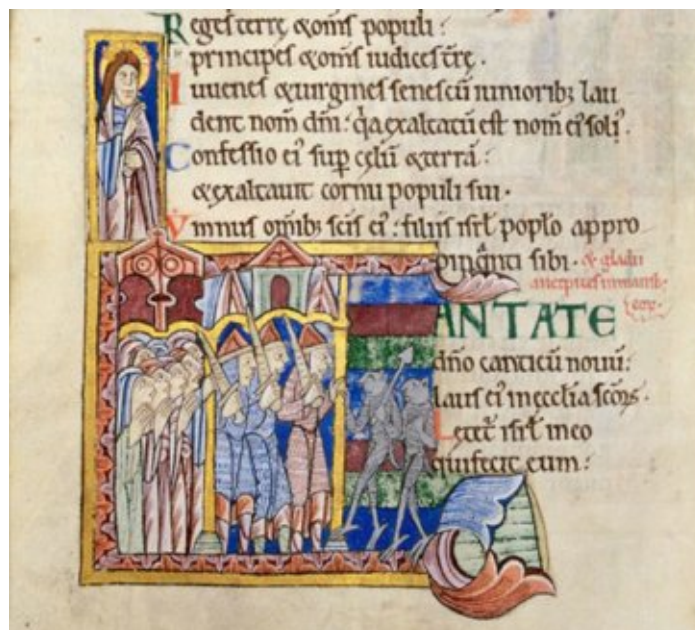 Regesterre &om̄s populi :
principes &om̄s iudicest̄rę .
Iuuenes &uirgines senescū iunioribꝫ lau
dent nom̄ dn̄i : q̇a exaltatū est nom̄ ei' soli' .
Confessio ei' sup̱ cęlū &terrā :
&exaltauit cornu populi sui .
Ymnus om̄ibꝫ sc̄is ei' : filiis isrł poplo appro
pinq̄nti sibi . & gladii
ancipites inmanibꝫ
eorꝫ .
CANTATE
dn̄o canticū nouū :
laus ei' inęcclia sc̄oꝝ .
Letet̄ isrł ineo
quifecit eum :